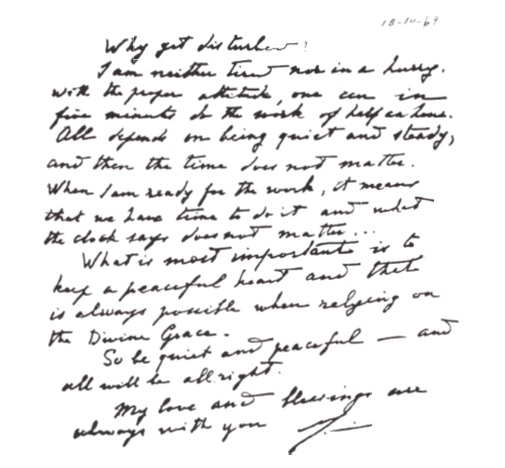 18-10-69
Why get disturbed?
I am neither tired nor in a hurry.
With the proper attitude, one can in
five minutes do the work of half an hour.
All depends on being quiet and steady,
and then the time does not matter.
When I am ready for the work, it means
that we have time to do it and what
the clock says does not matter...
What is most important is to
keep a peaceful heart and that
is always possible when relying on
the Divine Grace.
So be quiet and peaceful — and
all will be all right.
My love and blessings are
always with you